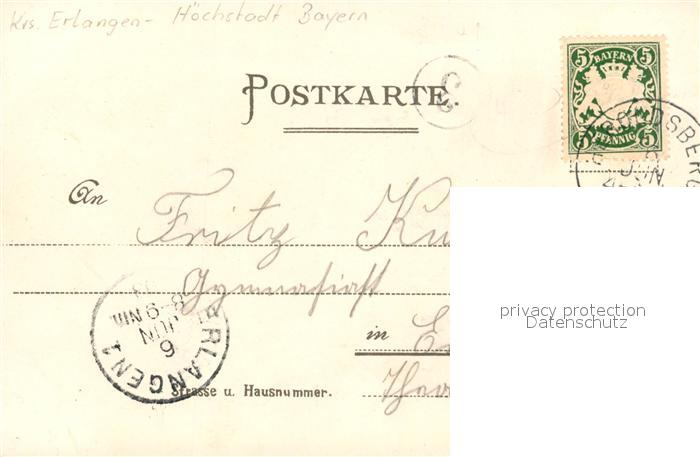 Krs. Erlangen- Höchstadt Bayern
3
5 BAYERN 5
POSTKARTE
5 PFENNIG 5
JUN
An Fritz
Gymnasiast
in
ERLANGEN 1
6
JUN
8-9 NM
Strasse u. Hausnummer.
privacy protection
Datenschutz